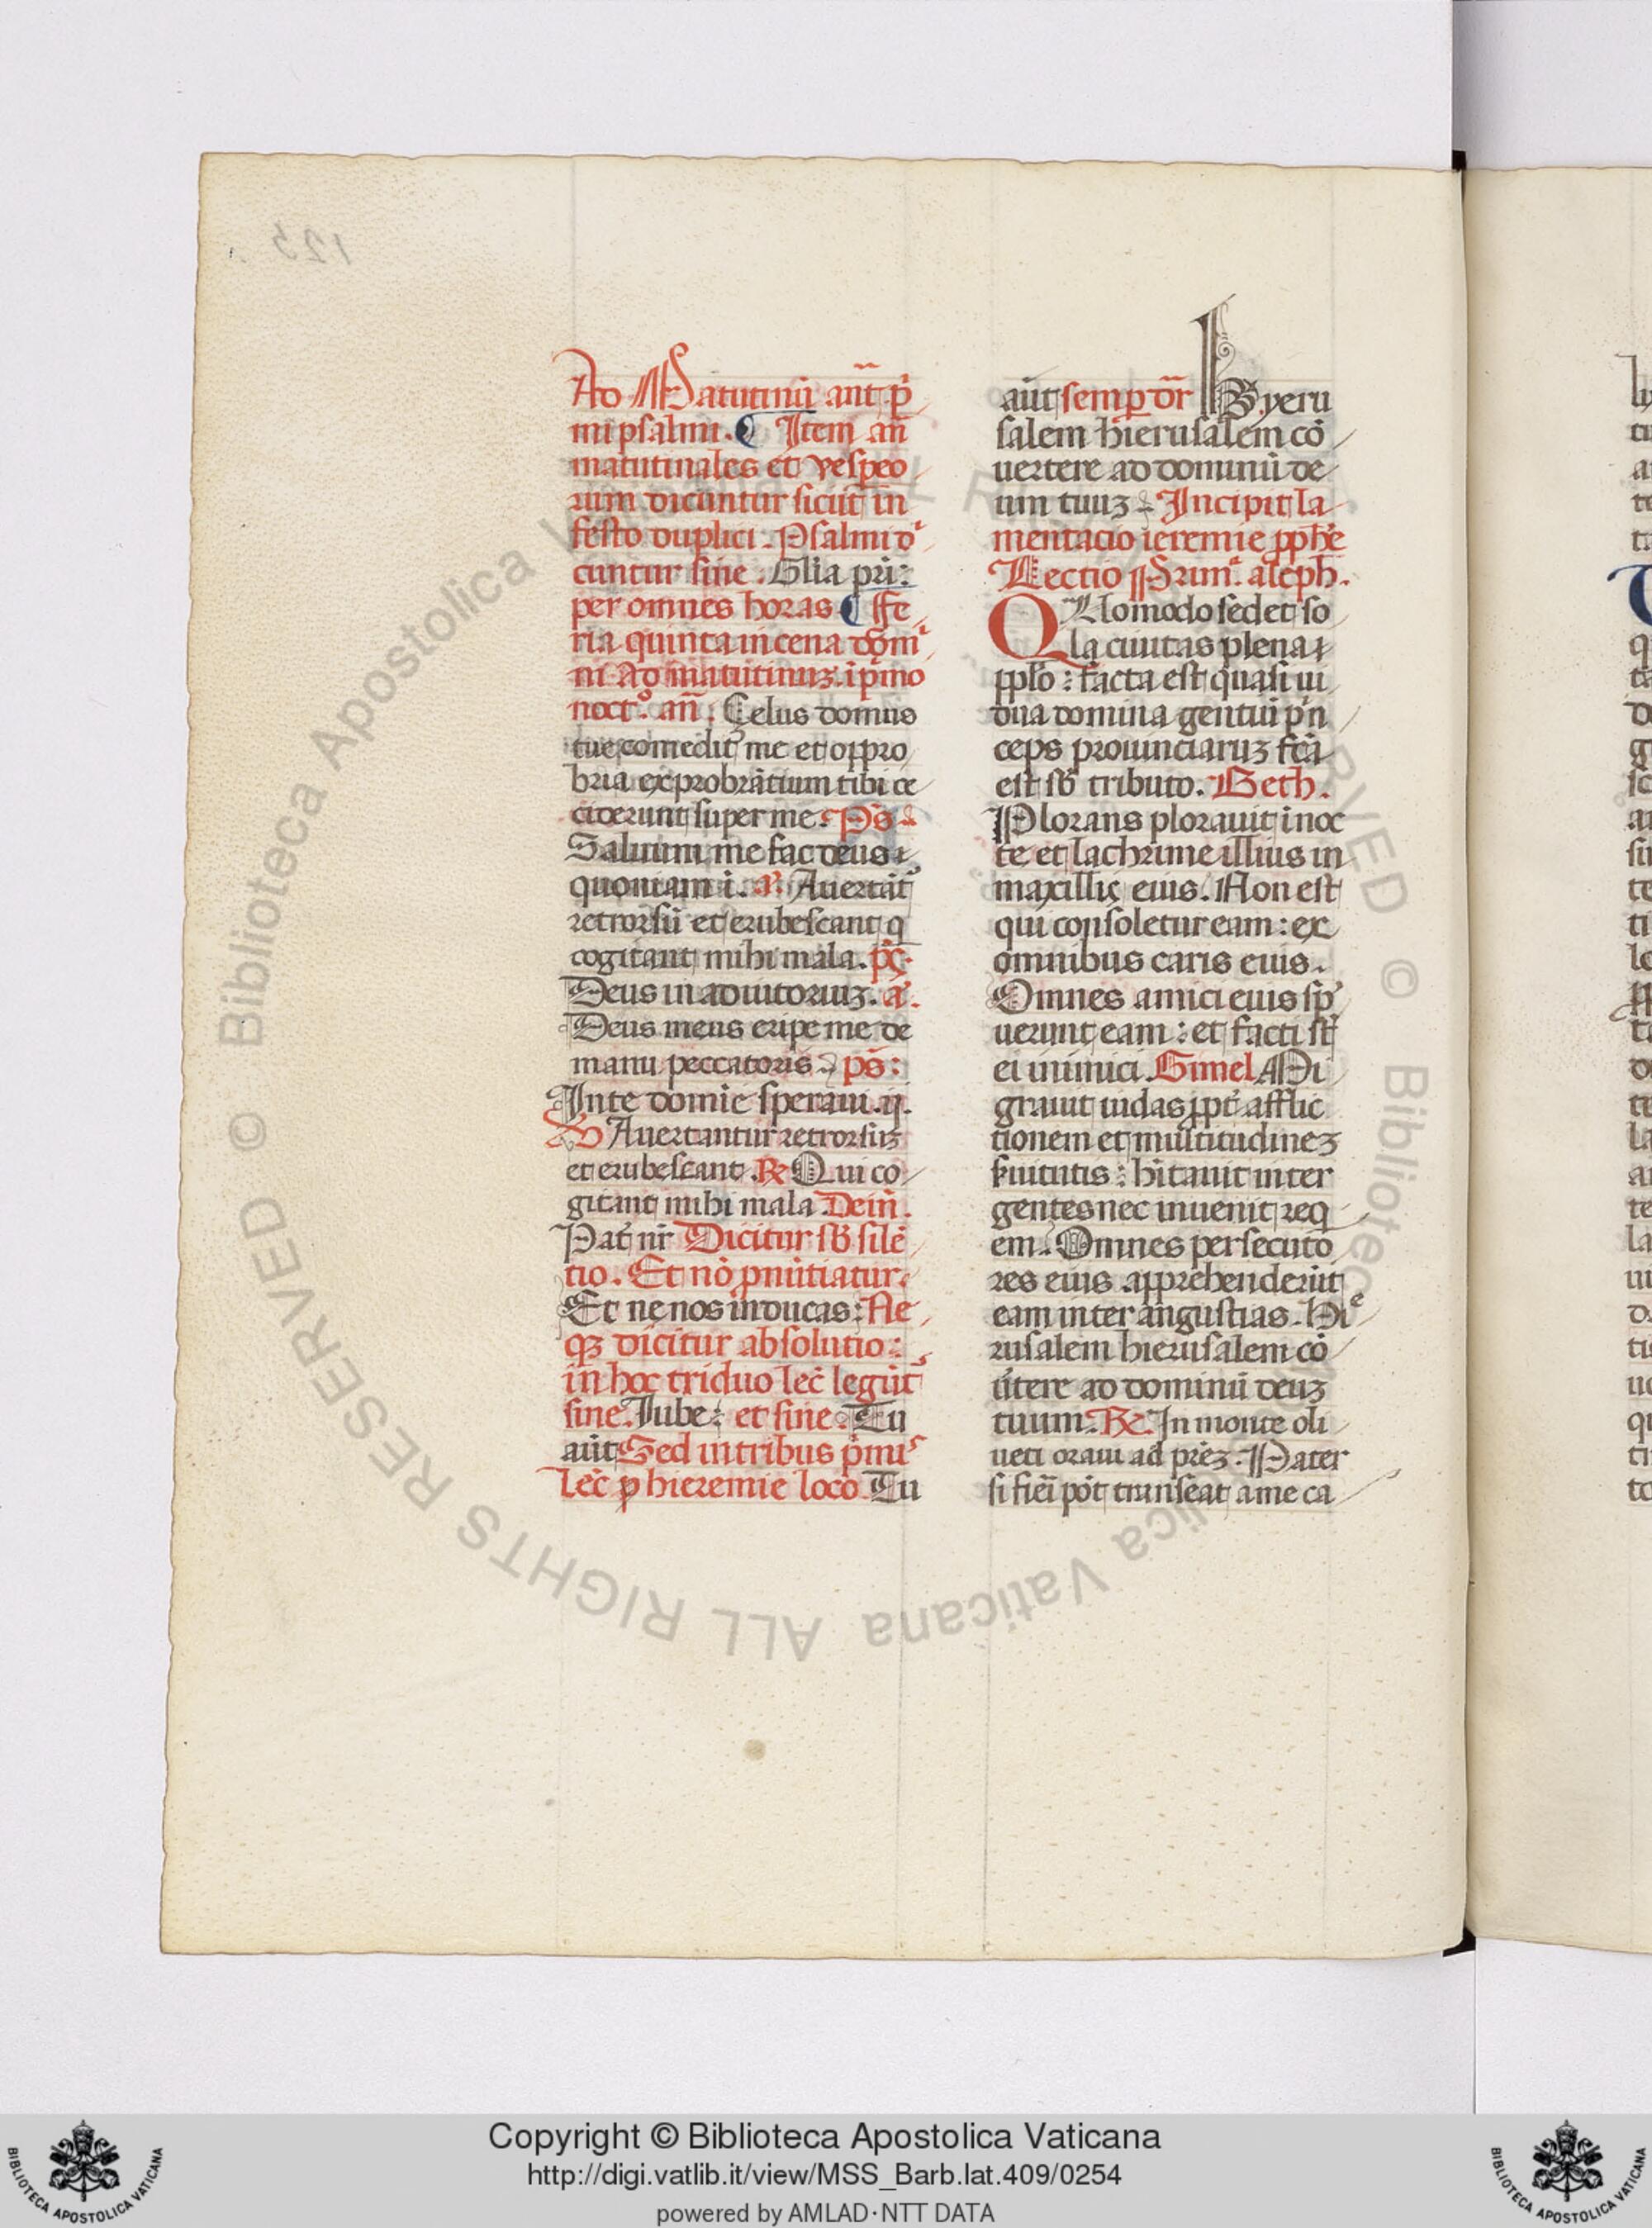 Ad Matutinũ añt p̃
mi psalmi. Item añ
matutinales et vespeo
rum dicuntur sicut in
festo duplici. Psalmi dⁱ
cuntur sine. Glia pri:
per omnes horas Fe
ria quinta in cena domⁱ
ni Ad matutinuʒ. i p̃mo
noctº. añ. Çelus domus
tue comedit me et oppro
bria exprobrãtium tibi ce
ciderunt super me. Ps
Saluum me fac deus
quoniam i. a. Auertãt
retrorsũ et erubescant q
cogitant mihi mala. ps.
Deus in adiutoriuʒ. a.
Deus meus eripe me de
manu peccatoris. ps:
In te domie speraui. ij.
V Auertantur retrorsuʒ
et erubescant. R Qui co
gitant mihi mala Dein̄.
Pat̃ nr̃ Dicitur sb̃ silẽ
tio. Et nõ pnũtiatur.
Et ne nos inducas: Ne
qʒ dicitur absolutio:
in hoc triduo lec̃ legũt
sine. Jube: et sine. Tu
aũt Sed in tribus p̃miˢ
lec̃ p hieremie loco. Tu
aũt semp dr̃ Hyeru
salem hierusalem cõ
uertere ad dominũ de
um tuuʒ. Incipit la
mentacio ieremie pphe
Lectio Primª. aleph.
QUomodo sedet so
la ciuitas plena
pplo: facta est quasi ui
dua domina gentiũ p̃n
ceps prouinciaruʒ fcã
est sb̃ tributo. Beth.
Plorans plorauit i noc
te et lachrime illius in
maxillis eius. Non est
qui consoletur eam: ex
omnibus caris eius.
Omnes amici eius sp̃
uerunt eam: et facti st̃
ei inimici. Gimel Mi
grauit iudas ppt̃ afflic
tionem et multitudineʒ
s̃uitutis: hĩtauit inter
gentes nec inuenit req
em. Omnes persecuto
res eius apprehenderũt
eam inter angustias. Hiᵉ
rusalem hierusalem cõ
ũtere ad dominũ deuʒ
tuum. R. In monte oli
ueti oraui ad pr̃eʒ. Pater
si fieĩ põt transeat a me ca
Copyright © Biblioteca Apostolica Vaticana
http://digi.vatlib.it/view/MSS_Barb.lat.409/0254
powered by AMLAD·NTT DATA
© Biblioteca Apostolica Vaticana ALL RIGHTS RESERVED
© Biblioteca Apostolica Vaticana ALL RIGHTS RESERVED
BIBLIOTECA APOSTOLICA VATICANA
BIBLIOTECA APOSTOLICA VATICANA